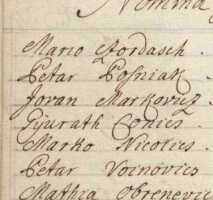 Nomina
Mario Gordasch.
Petar Posniak.
Jovan Markovuz
Gjurath Conics.
Marko Nicolics.
Petar Voinovics
Mathia Obrenevic